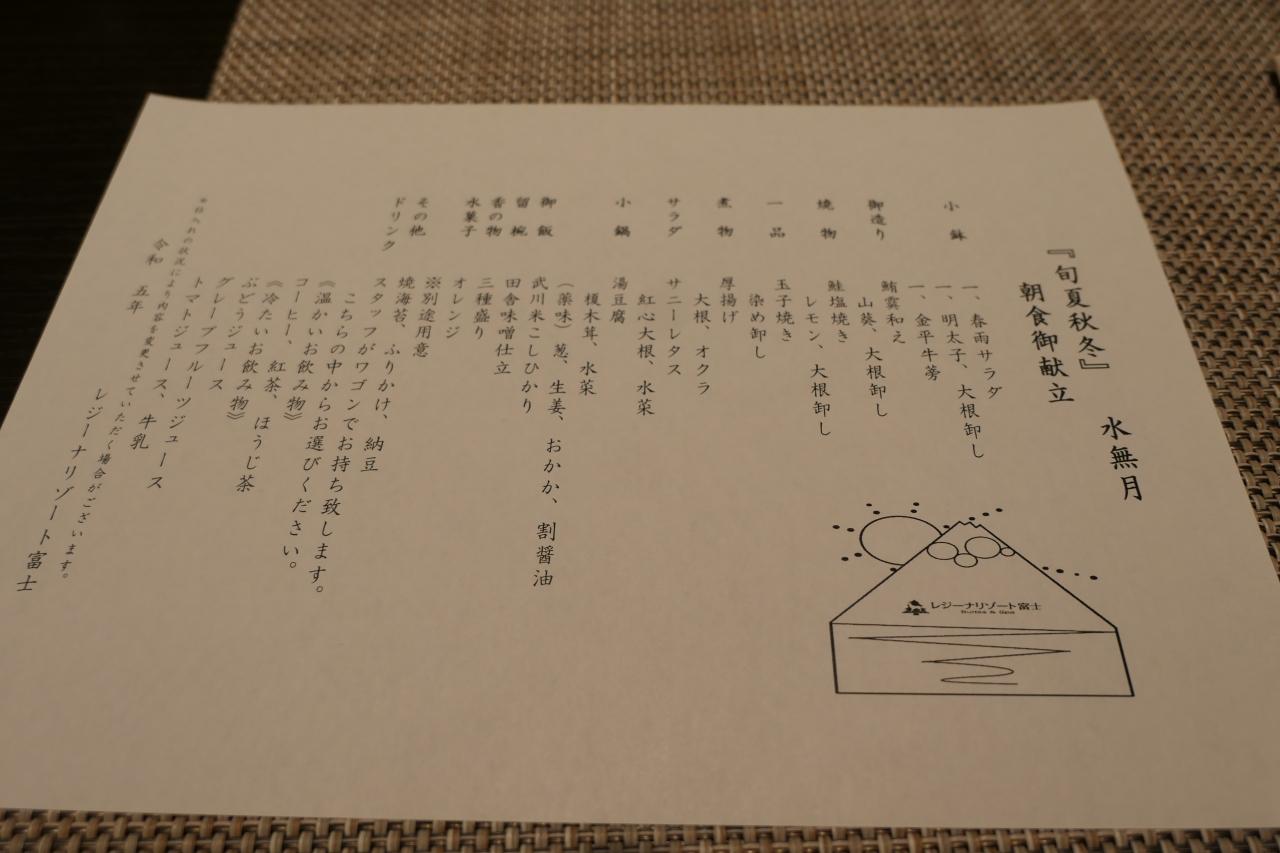 『旬夏秋冬』 水無月
朝食御献立
小鉢 一、春雨サラダ
一、明太子、大根卸し
一、金平牛蒡
御造り 鮪霙和え
山葵、大根卸し
焼物 鮭塩焼き
レモン、大根卸し
一品 玉子焼き
染め卸し
煮物 厚揚げ
大根、オクラ
サラダ サニーレタス
紅心大根、水菜
小鍋 湯豆腐
榎木茸、水菜
（薬味）葱、生姜、おかか、割醤油
御飯 武川米こしひかり
留椀 田舎味噌仕立
香の物 三種盛り
水菓子 オレンジ
その他 ※別途用意
焼海苔、ふりかけ、納豆
ドリンク スタッフがワゴンでお持ち致します。
こちらの中からお選びください。
《温かいお飲み物》
コーヒー、紅茶、ほうじ茶
《冷たいお飲み物》
ぶどうジュース
グレープフルーツジュース
トマトジュース、牛乳
※仕入れの状況により内容を変更させていただく場合がございます。
令和 五年
レジーナリゾート富士
レジーナリゾート富士
Suites & Spa